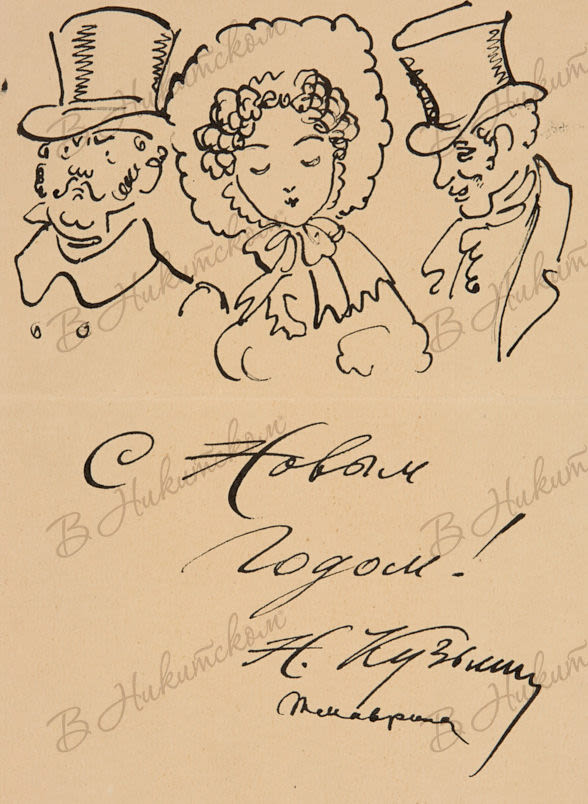 С Новым
Годом!
Н. Кузьмин
ТМаврина
В Никитском
В Никитском
В Никитском
В Никитском
В Никитском
В Никитском
В Никитском
В Никитском